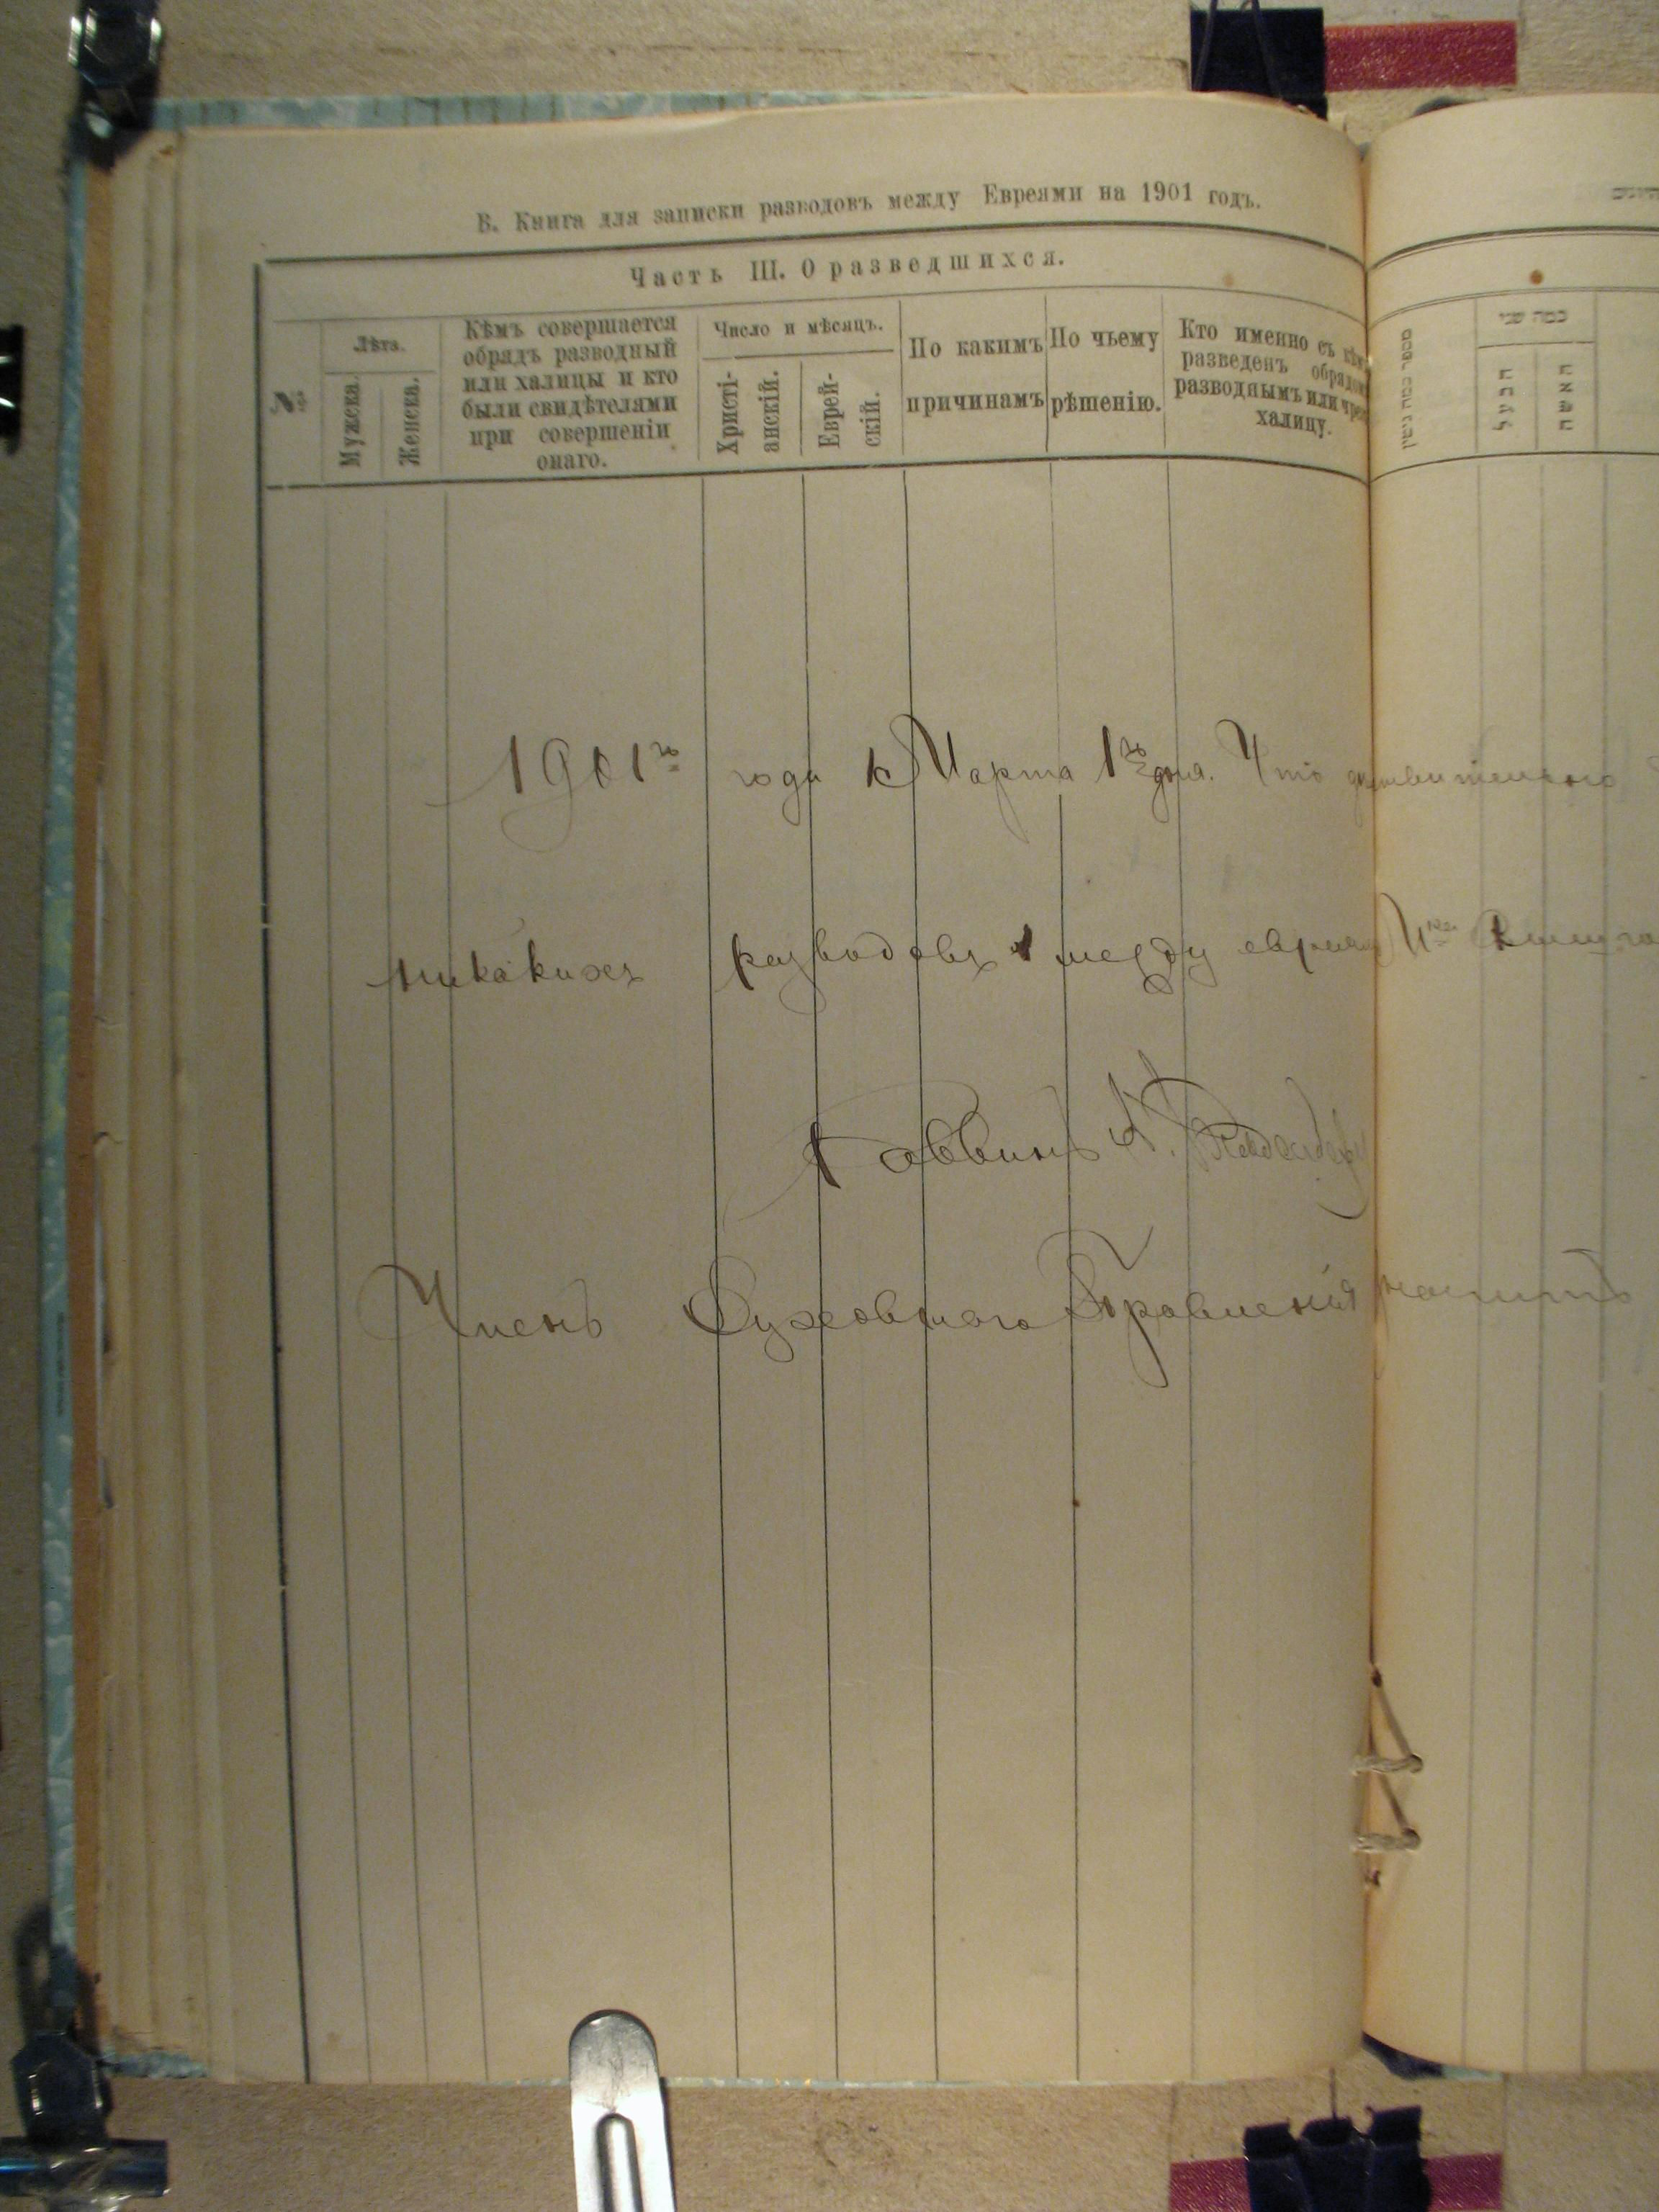 В. Книга для записки разводовъ между Евреями на 1901 годъ.
Часть III. О разведшихся.
№
Лѣта.
Мужска.
Женска.
Кѣмъ совершается
обрядъ разводный
или халицы и кто
были свидѣтелями
при совершеніи
онаго.
Число и мѣсяцъ.
Христі-
анскій.
Еврей-
скій.
По какимъ
причинамъ
По чьему
рѣшенію.
Кто именно съ кѣмъ
разведенъ обрядомъ
разводнымъ или чрез
халицу.
כמה שני
הבעל
האשה
1901го года Марта 1го дня. Что действительно
никакихъ разводовъ между евреями
Раввинъ
Членъ Духовнаго Правленія